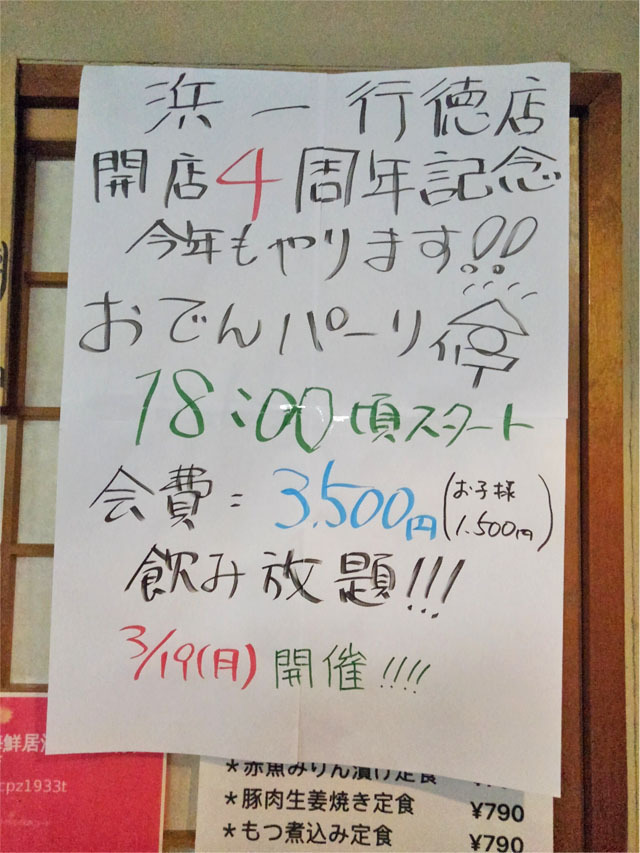 浜一行徳店
開店4周年記念
今年もやります!!
おでんパーリィ
18:00頃スタート
会費=3,500円(お子様1,500円)
飲み放題!!!
3/19(月)開催!!!!
海鮮居
cpz1933t
*赤魚みりん漬け定食
*豚肉生姜焼き定食 ¥790
*もつ煮込み定食 ¥790